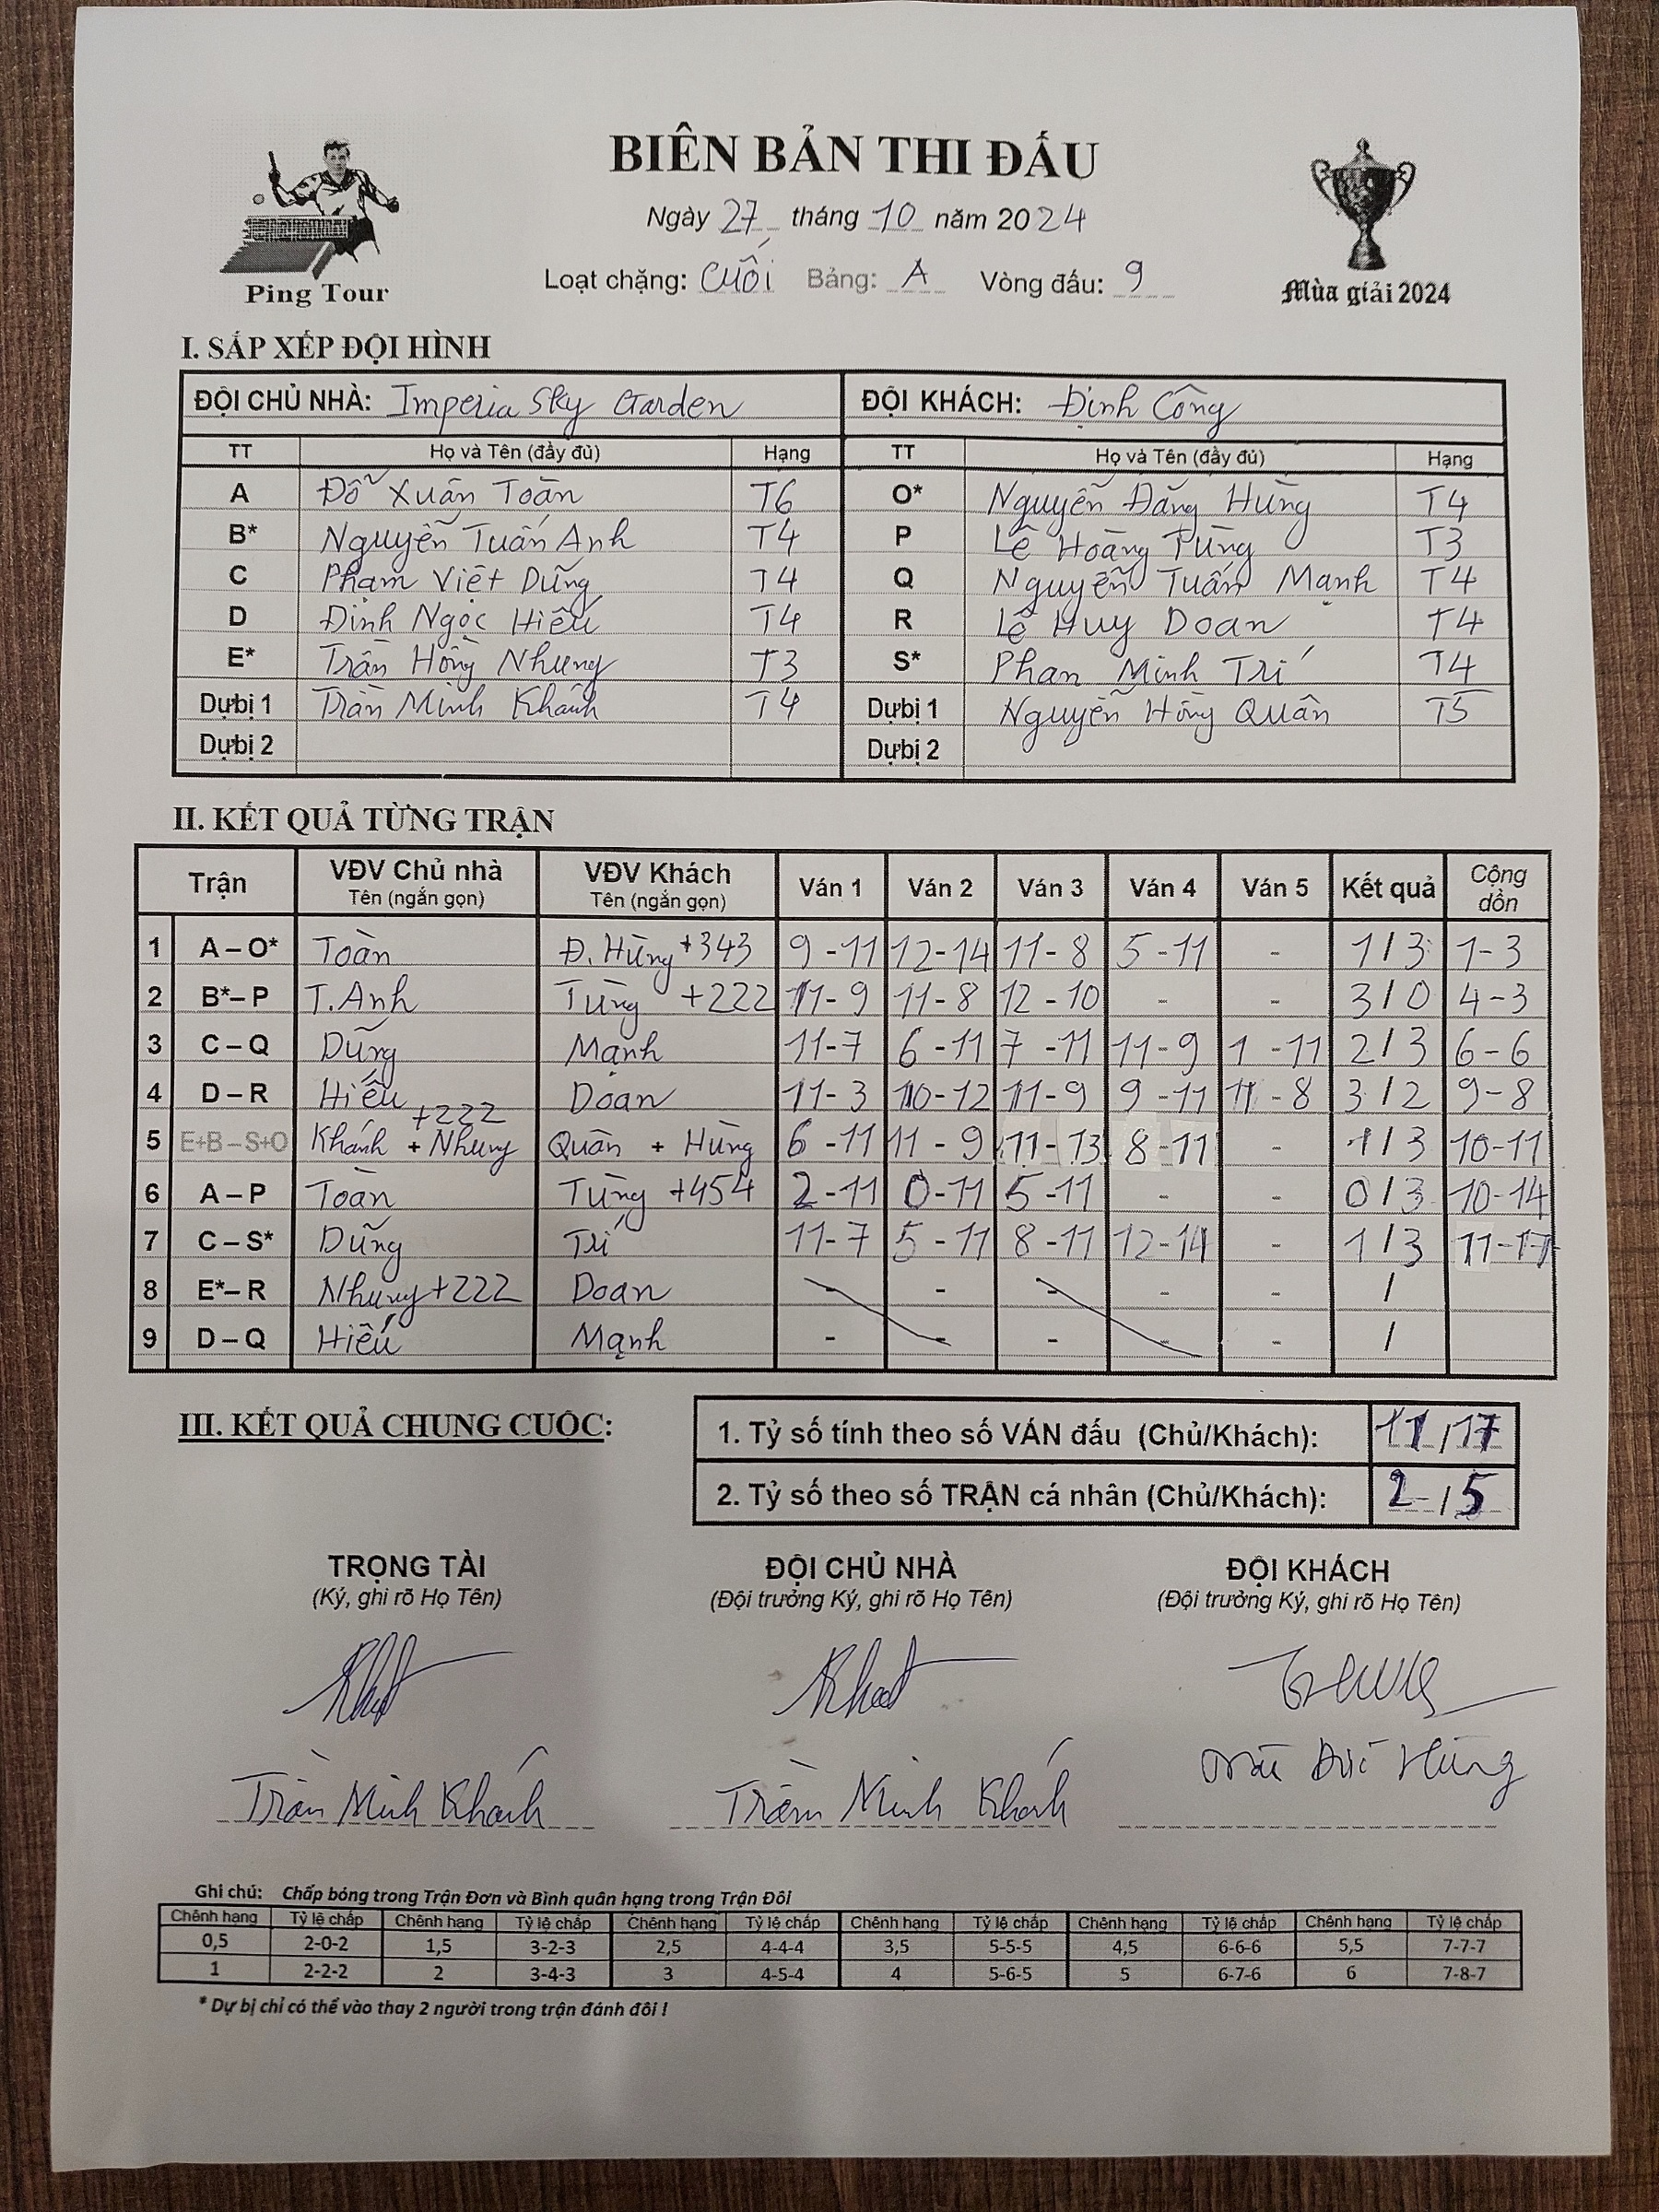 BIÊN BẢN THI ĐẤU
Ngày 27 tháng 10 năm 2024
Loạt chặng: Cuối Bảng: A Vòng đấu: 9
Ping Tour
Mùa giải 2024
I. SẮP XẾP ĐỘI HÌNH
ĐỘI CHỦ NHÀ: Imperia Sky Garden ĐỘI KHÁCH: Định Công
TT Họ và Tên (đầy đủ) Hạng TT Họ và Tên (đầy đủ) Hạng
A Đỗ Xuân Toàn T6 O* Nguyễn Đăng Hùng T4
B* Nguyễn Tuấn Anh T4 P Lê Hoàng Tùng T3
C Phạm Việt Dũng T4 Q Nguyễn Tuấn Mạnh T4
D Đinh Ngọc Hiếu T4 R Lê Huy Doan T4
E* Trần Hồng Nhung T3 S* Phan Minh Trí T4
Dự bị 1 Trần Minh Khánh T4 Dự bị 1 Nguyễn Hồng Quân T5
Dự bị 2 Dự bị 2
II. KẾT QUẢ TỪNG TRẬN
Trận VĐV Chủ nhà Tên (ngắn gọn) VĐV Khách Tên (ngắn gọn) Ván 1 Ván 2 Ván 3 Ván 4 Ván 5 Kết quả Cộng dồn
1 A – O* Toàn Đ. Hùng +343 9 - 11 12 - 14 11 - 8 5 - 11 - 1 / 3 1 - 3
2 B* – P T. Anh Tùng +222 11 - 9 11 - 8 12 - 10 - - 3 / 0 4 - 3
3 C – Q Dũng Mạnh 11 - 7 6 - 11 7 - 11 11 - 9 1 - 11 2 / 3 6 - 6
4 D – R Hiếu Doan 11 - 3 10 - 12 11 - 9 9 - 11 11 - 8 3 / 2 9 - 8
5 E+B – S+O Khánh + Nhung +222 Quân + Hùng 6 - 11 11 - 9 11 - 13 8 - 11 - 1 / 3 10 - 11
6 A – P Toàn Tùng +454 2 - 11 0 - 11 5 - 11 - - 0 / 3 10 - 14
7 C – S* Dũng Trí 11 - 7 5 - 11 8 - 11 12 - 14 - 1 / 3 11 - 17
8 E* – R Nhung +222 Doan - - - - - /
9 D – Q Hiếu Mạnh - - - - - /
III. KẾT QUẢ CHUNG CUỘC:
1. Tỷ số tính theo số VÁN đấu (Chủ/Khách): 11 / 17
2. Tỷ số theo số TRẬN cá nhân (Chủ/Khách): 2 / 5
TRỌNG TÀI ĐỘI CHỦ NHÀ ĐỘI KHÁCH
(Ký, ghi rõ Họ Tên) (Đội trưởng Ký, ghi rõ Họ Tên) (Đội trưởng Ký, ghi rõ Họ Tên)
Trần Minh Khánh Trần Minh Khánh Hùng
Ghi chú: Chấp bóng trong Trận Đơn và Bình quân hạng trong Trận Đôi
Chênh hạng Tỷ lệ chấp Chênh hạng Tỷ lệ chấp Chênh hạng Tỷ lệ chấp Chênh hạng Tỷ lệ chấp Chênh hạng Tỷ lệ chấp Chênh hạng Tỷ lệ chấp
0,5 2-0-2 1,5 3-2-3 2,5 4-4-4 3,5 5-5-5 4,5 6-6-6 5,5 7-7-7
1 2-2-2 2 3-4-3 3 4-5-4 4 5-6-5 5 6-7-6 6 7-8-7
* Dự bị chỉ có thể vào thay 2 người trong trận đánh đôi !